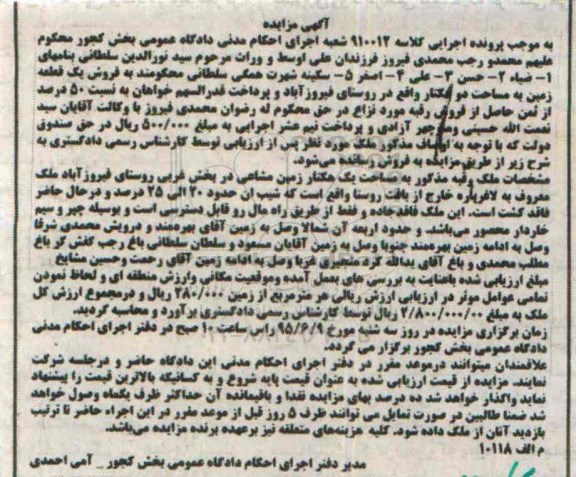 آگهی مزایده
به موجب پرونده اجرایی کلاسه ۹۱۰۰۱۲ شعبه اجرای احکام مدنی دادگاه عمومی بخش کجور محکوم
علیهم محمدو رجب محمدی فیروز فرزندان علی اوسط و وراث مرحوم سید نورالدین سلطانی بنامهای
۱- ضیاء ۲- حسن ۳- علی ۴- اصغر ۵- سکینه شهرت همگی سلطانی محکومند به فروش یک قطعه
زمین به مساحت دو هکتار واقع در روستای فیروزآباد و پرداخت قدرالسهم خواهان به نسبت ۵۰ درصد
از ثمن حاصل از فروش رقبه مورد نزاع در حق محکوم له رضوان محمدی فیروز با وکالت آقایان سید
نعمت الله حسینی ومنوچهر آزادی و پرداخت نیم عشر اجرایی به مبلغ ۵۰۰/۰۰۰ ریال در حق صندوق
دولت که با توجه به اوصاف مذکور ملک مورد نظر پس از ارزیابی توسط کارشناس رسمی دادگستری به
شرح زیر از طریق مزایده به فروش رسانده می‌شود.
مشخصات ملک رقبه مذکور به مساحت یک هکتار زمین مشاعی در بخش غربی روستای فیروزآباد ملک
معروف به خارج از بافت روستا واقع است که شیب آن حدود ۲۰ الی ۲۵ درصد و درحال حاضر
فاقد کشت است. این ملک فاقدجاده و فقط از طریق راه مال رو قابل دسترسی است و بوسیله چپر و سیم
خاردار محصور می‌باشد. و حدود اربعه آن شمالا وصل به زمین آقای بهره‌مند و درویش محمدی شرقا
وصل به ادامه زمین بهره‌مند جنوبا وصل به زمین آقایان مسعود و سلطان سلطانی باغ رجب کفش گر باغ
مطلب محمدی و باغ آقای یدالله گرد منجیری غربا وصل به ادامه زمین آقای رحمت وحسین مشایخ
مبلغ ارزیابی شده باعنایت به بررسی های بعمل آمده وموقعیت مکانی وارزش منطقه ای و لحاظ نمودن
تمامی عوامل موثر در ارزیابی ارزش ریالی هر مترمربع از زمین ۲۸۰/۰۰۰ ریال و درمجموع ارزش کل
ملک به مبلغ ۲/۸۰۰/۰۰۰/۰۰ ریال توسط کارشناس رسمی دادگستری برآورد و محاسبه گردید.
زمان برگزاری مزایده در روز سه شنبه مورخ ۹۵/۶/۹ راس ساعت ۱۰ صبح در دفتر اجرای احکام مدنی
دادگاه عمومی بخش کجور برگزار می گردد.
علاقمندان میتوانند درموعد مقرر در دفتر اجرای احکام مدنی این دادگاه حاضر و درجلسه شرکت
نمایند. مزایده از قیمت ارزیابی شده به عنوان قیمت پایه شروع و به کسانیکه بالاترین قیمت را پیشنهاد
نماید واگذار خواهد شد ده درصد بهای مزایده نقدا و باقیمانده آن حداکثر ظرف یکماه وصول خواهد
شد ضمنا طالبین در صورت تمایل می توانند ظرف ۵ روز قبل از موعد مقرر در این اجراء حاضر تا ترتیب
بازدید آنان از ملک داده شود. کلیه هزینه‌های متعلقه نیز برعهده برنده مزایده می‌باشد.
م الف ۱۰۱۱۸
مدیر دفتر اجرای احکام دادگاه عمومی بخش کجور _ آمی احمدی